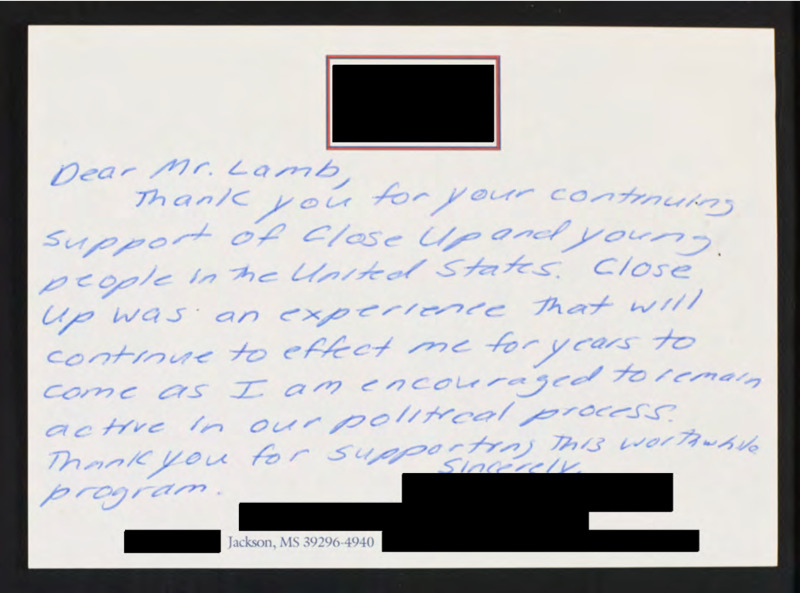 Dear Mr. Lamb,
Thank you for your continuing
support of Close Up and young
people in the United States. Close
Up was an experience that will
continue to effect me for years to
come as I am encouraged to remain
active in our political process.
Thank you for supporting this worthwhile
program.
Sincerely,
Jackson, MS 39296-4940